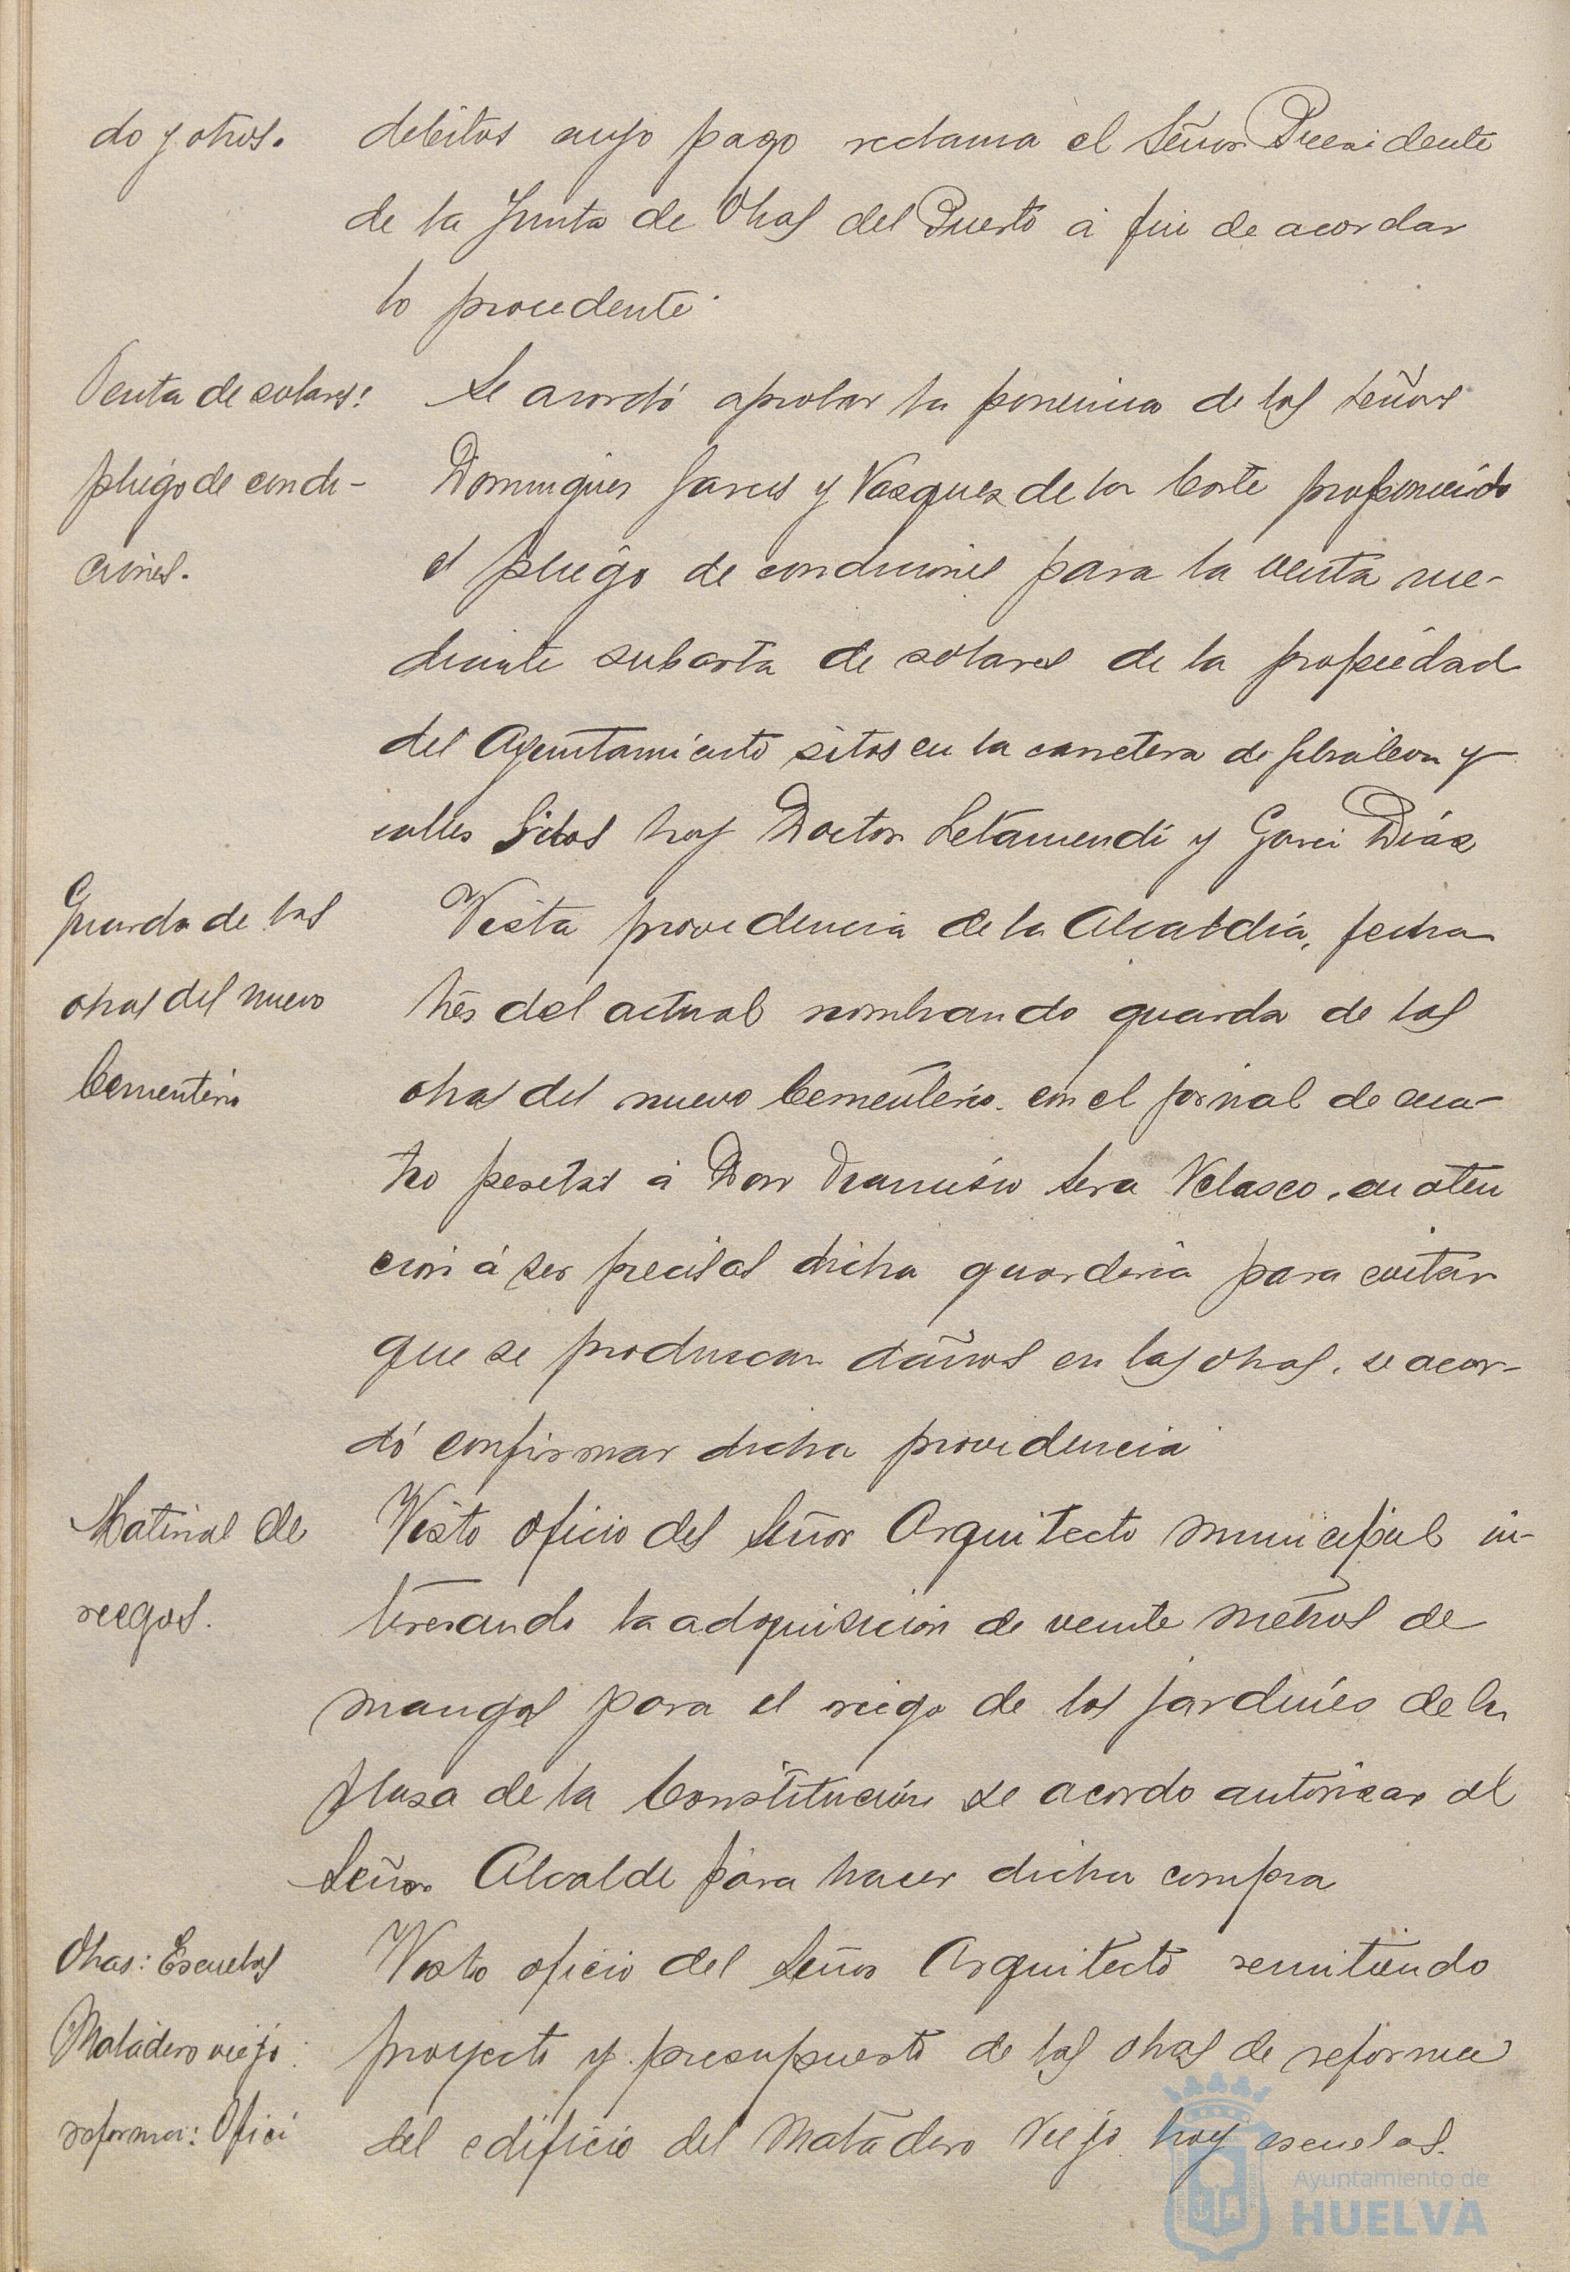 do y otros.
debitos cuyo pago reclama el Señor Presidente
de la Junta de Obras del Puerto á fin de acordar
lo procedente.
Venta de solares:
pliego de condi-
ciones.
Se acordó aprobar la ponencia de los señores
Dominguez Garces y Vazquez de la Corte proponiendo
el pliego de condiciones para la venta me-
diante subasta de solares de la propiedad
del Ayuntamiento sitos en la carretera de Gibraleon y
calles Silos hoy Doctor Letamendi y Garci Diaz
Guarda de las
obras del nuevo
Cementerio
Vista providencia de la Alcaldía, fecha
tres del actual nombrando guarda de las
obras del nuevo Cementerio. con el jornal de cua-
tro pesetas á Don Francisco Sera Velasco, en aten
ción á ser precisas dicha guardería para evitar
que se produzcan daños en las obras, se acor-
dó confirmar dicha providencia
Material de
riegos.
Visto oficio del Señor Arquitecto municipal in-
teresando la adquisicion de veinte metros de
mangas para el riego de los jardines de la
plasa de la Constitución se acordo autorizar al
Señor Alcalde para hacer dicha compra
Obras: Escuelas
Matadero viejo:
reforma: Ofici
Visto oficio del Señor Arquitecto remitiendo
proyecto y presupuesto de las obras de reforma
del edificio del Matadero Viejo hoy escuelas.
Ayuntamiento de
HUELVA